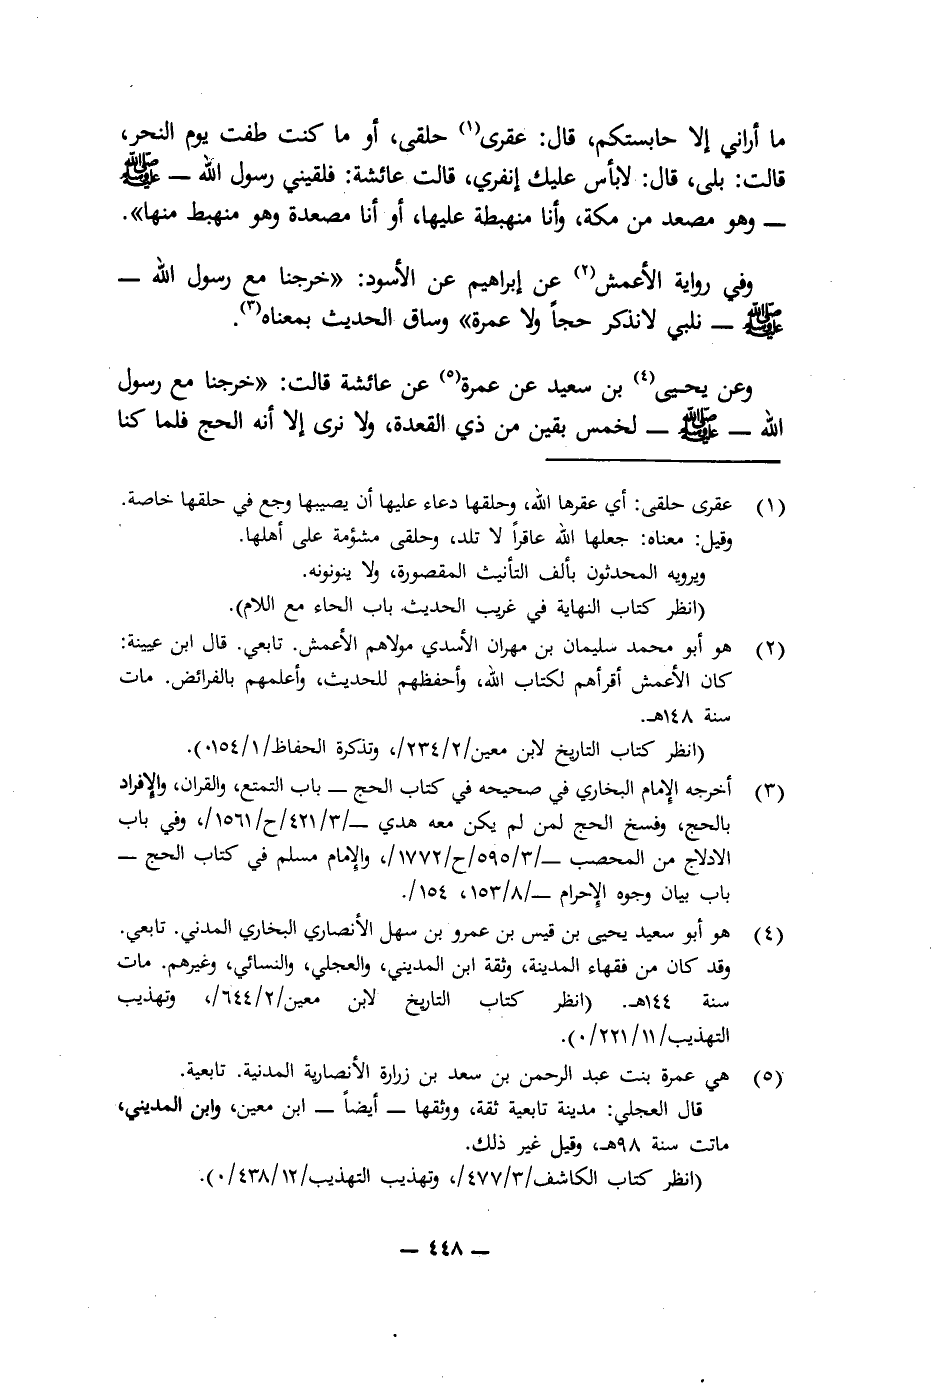 ما أراني إلا حابستكم، قال: عقرى(١) حلقى، أو ما كنت طفت يوم النحر،
قالت: بلى، قال: لابأس عليك إنفري، قالت عائشة: فلقيني رسول الله — ﷺ
— وهو مصعد من مكة، وأنا منهبطة عليها، أو أنا مصعدة وهو منهبط منها».
وفي رواية الأعمش(٢) عن إبراهيم عن الأسود: «خرجنا مع رسول الله —
ﷺ — نلبي لانذكر حجاً ولا عمرة» وساق الحديث بمعناه(٣).
وعن يحيى(٤) بن سعيد عن عمرة(٥) عن عائشة قالت: «خرجنا مع رسول
الله — ﷺ — لخمس بقين من ذي القعدة، ولا نرى إلا أنه الحج فلما كنا
(١) عقرى حلقى: أي عقرها الله، وحلقها دعاء عليها أن يصيبها وجع في حلقها خاصة.
وقيل: معناه: جعلها الله عاقراً لا تلد، وحلقى مشؤمة على أهلها.
ويرويه المحدثون بألف التأنيث المقصورة، ولا ينونونه.
(انظر كتاب النهاية في غريب الحديث باب الحاء مع اللام).
(٢) هو أبو محمد سليمان بن مهران الأسدي مولاهم الأعمش. تابعي. قال ابن عيينة:
كان الأعمش أقرأهم لكتاب الله، وأحفظهم للحديث، وأعلمهم بالفرائض. مات
سنة ١٤٨هـ.
(انظر كتاب التاريخ لابن معين/٢٣٤/٢/، وتذكرة الحفاظ/١٥٤/١/٠).
(٣) أخرجه الإمام البخاري في صحيحه في كتاب الحج — باب التمتع، والقران، والإفراد
بالحج، وفسخ الحج لمن لم يكن معه هدي —/٤٢١/٣/ح/١٥٦١/، وفي باب
الادلاج من المحصب —/٥٩٥/٣/ح/١٧٧٢/، والإمام مسلم في كتاب الحج —
باب بيان وجوه الإحرام —/١٥٣/٨، ١٥٤/.
(٤) هو أبو سعيد يحيى بن قيس بن عمرو بن سهل الأنصاري البخاري المدني. تابعي.
وقد كان من فقهاء المدينة، وثقة ابن المديني، والعجلي، والنسائي، وغيرهم. مات
سنة ١٤٤هـ. (انظر كتاب التاريخ لابن معين/٦٤٤/٢/، وتهذيب
التهذيب/٢٢١/١١/٠).
(٥) هي عمرة بنت عبد الرحمن بن سعد بن زرارة الأنصارية المدنية. تابعية.
قال العجلي: مدينة تابعية ثقة، ووثقها — أيضاً — ابن معين، وابن المديني،
ماتت سنة ٩٨هـ، وقيل غير ذلك.
(انظر كتاب الكاشف/٤٧٧/٣/، وتهذيب التهذيب/٤٣٨/١٢/٠).
— ٤٤٨ —